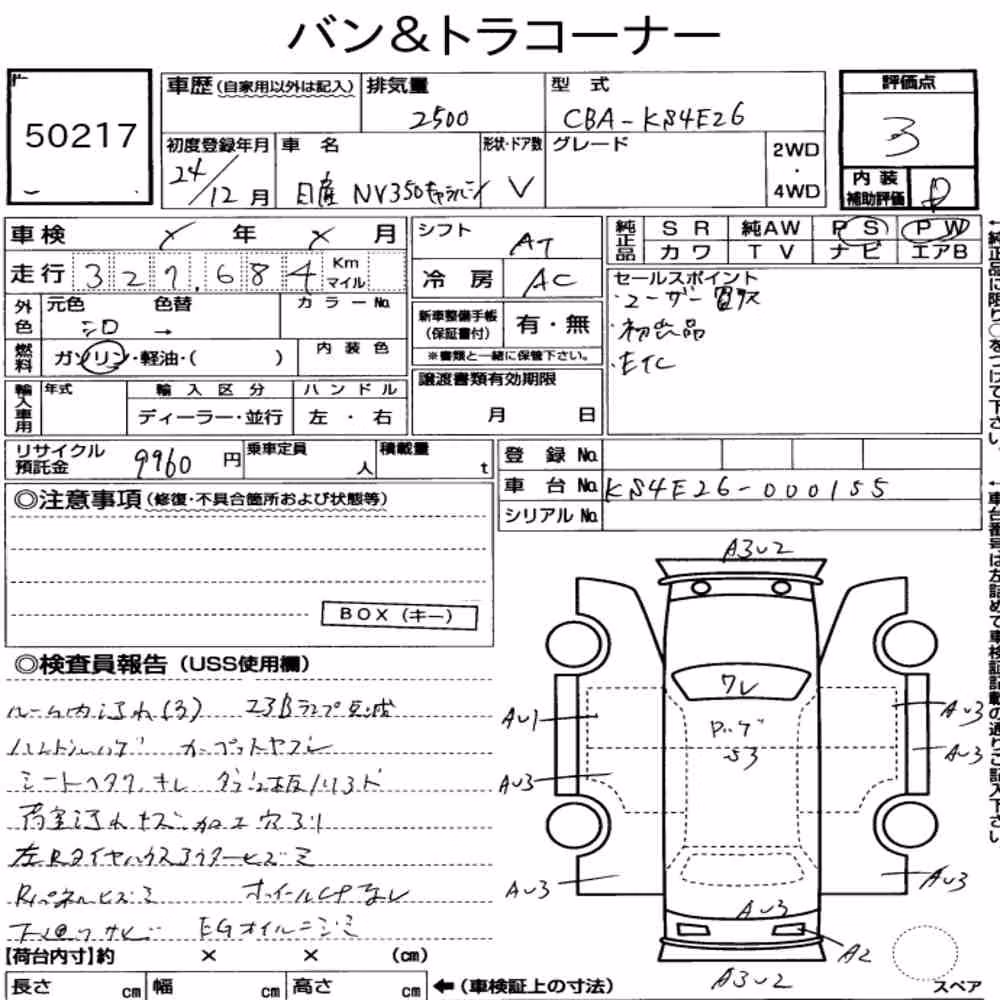 バン&トラコーナー
50217
車歴(自家用以外は記入)
排気量
2500
型式
CBA-KS4E26
評価点
3
初度登録年月
24/12月
車名
日産 NV350キャラバン
形状・ドア数
V
グレード
2WD
・
4WD
内装
補助評価
D
車検
年
月
走行
327,684
Km
マイル
シフト
AT
冷房
AC
純正品
SR
純AW
PS
PW
カワ
TV
ナビ
エアB
外色
元色
シロ
色替
→
カラーNo.
燃料
ガソリン・軽油・( )
内装色
新車整備手帳
(保証書付)
有・無
※書類と一緒に保管下さい。
セールスポイント
・ユーザー買取
・初出品
・ETC
輸入車用
年式
輸入区分
ディーラー・並行
ハンドル
左・右
譲渡書類有効期限
月 日
リサイクル
預託金
9960円
乗車定員
人
積載量
t
登録No.
車台No.
KS4E26-000155
シリアルNo.
◎注意事項(修復・不具合箇所および状態等)
BOX(キー)
◎検査員報告(USS使用欄)
ルーム内汚れ(3)
ハンドルハゲ カーペットヤブレ
シートヘタリ、キレ
荷室汚れキズ 加工穴あり
Rパネルヒズミ ホイールCPなし
下廻りサビ EGオイルニジミ
【荷台内寸】約 × × (cm)
長さ cm
幅 cm
高さ cm
←(車検証上の寸法)
A3U2
ワレ
AU1
AU3
AU3
AU3
AU3
AU3
AU3
A2
A3U2
スペア
←純正品に限り○をつけて下さい。
←車台番号は左詰めて車検証記載の通りご記入下さい。